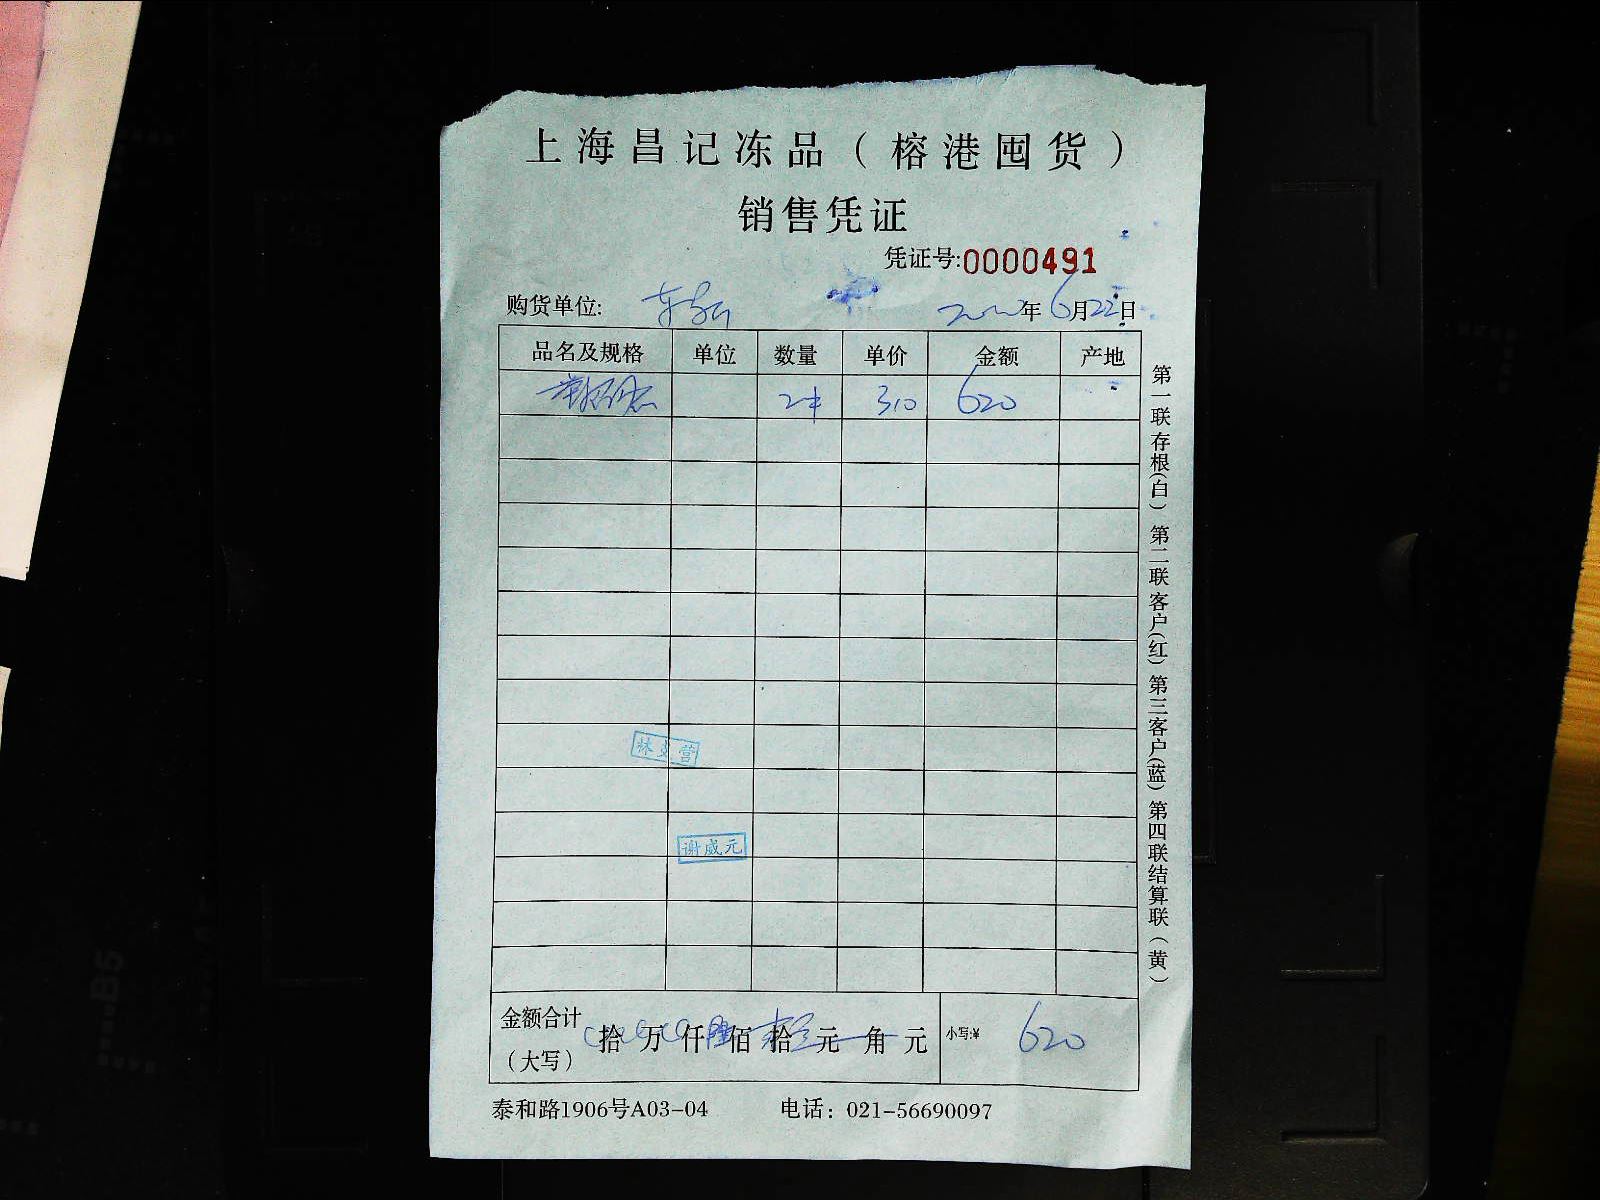 上海昌记冻品（榕港囤货）
销售凭证
凭证号:0000491
购货单位: 年6月22日
品名及规格 单位 数量 单价 金额 产地
2件 310 620
林 营
谢威元
金额合计 拾 万 仟 陆 佰 拾 元 角 元 小写:¥ 620
（大写）
泰和路1906号A03-04 电话：021-56690097
第一联存根(白) 第二联客户(红) 第三客户(蓝) 第四联结算联(黄)
B5